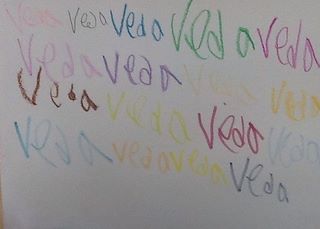 Veda Veda Veda Veda Veda
Veda Veda Veda Veda
Veda Veda Veda Veda
Veda Veda Veda Veda